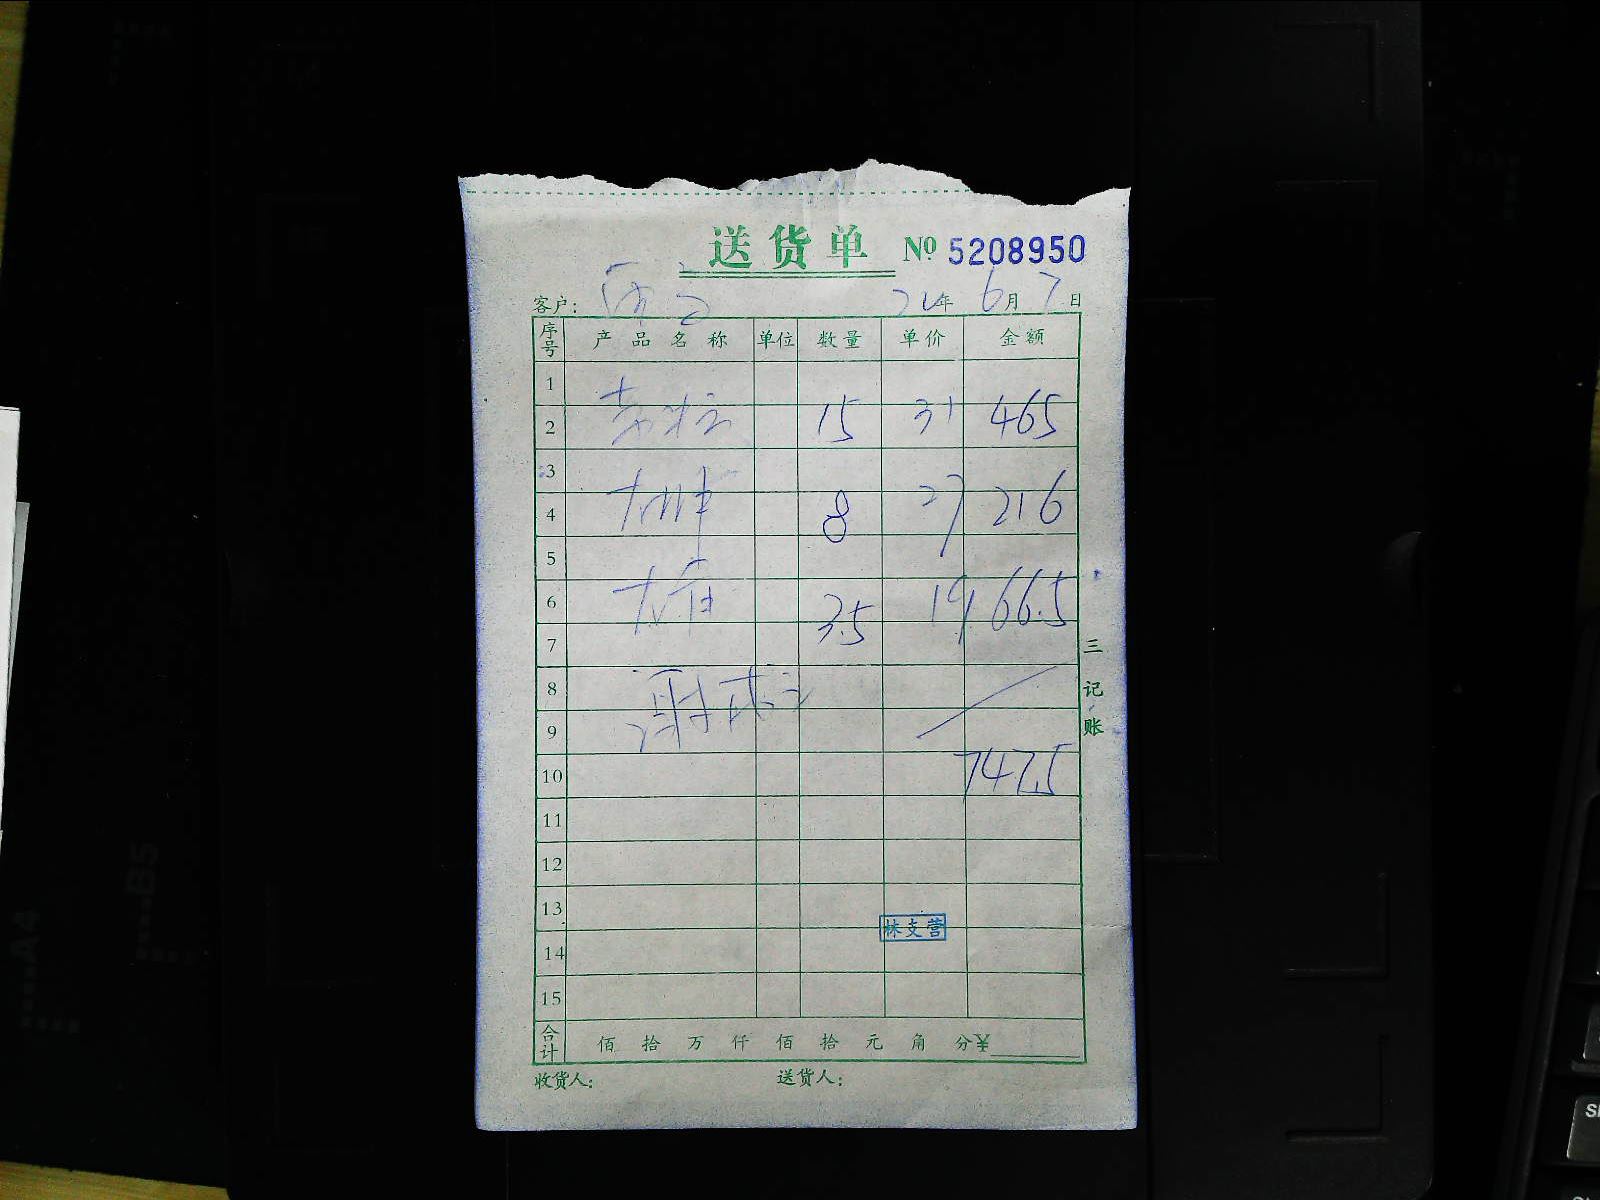 送货单 Nº 5208950
客户: 21年 6月 7日
序号 产品名称 单位 数量 单价 金额
1
2 15 31 465
3
4 8 27 216
5
6 3.5 19 66.5
7
8
9
10 747.5
11
12
13
林支营
14
15
合计 佰 拾 万 仟 佰 拾 元 角 分¥
收货人: 送货人:
三记账
A4
B5